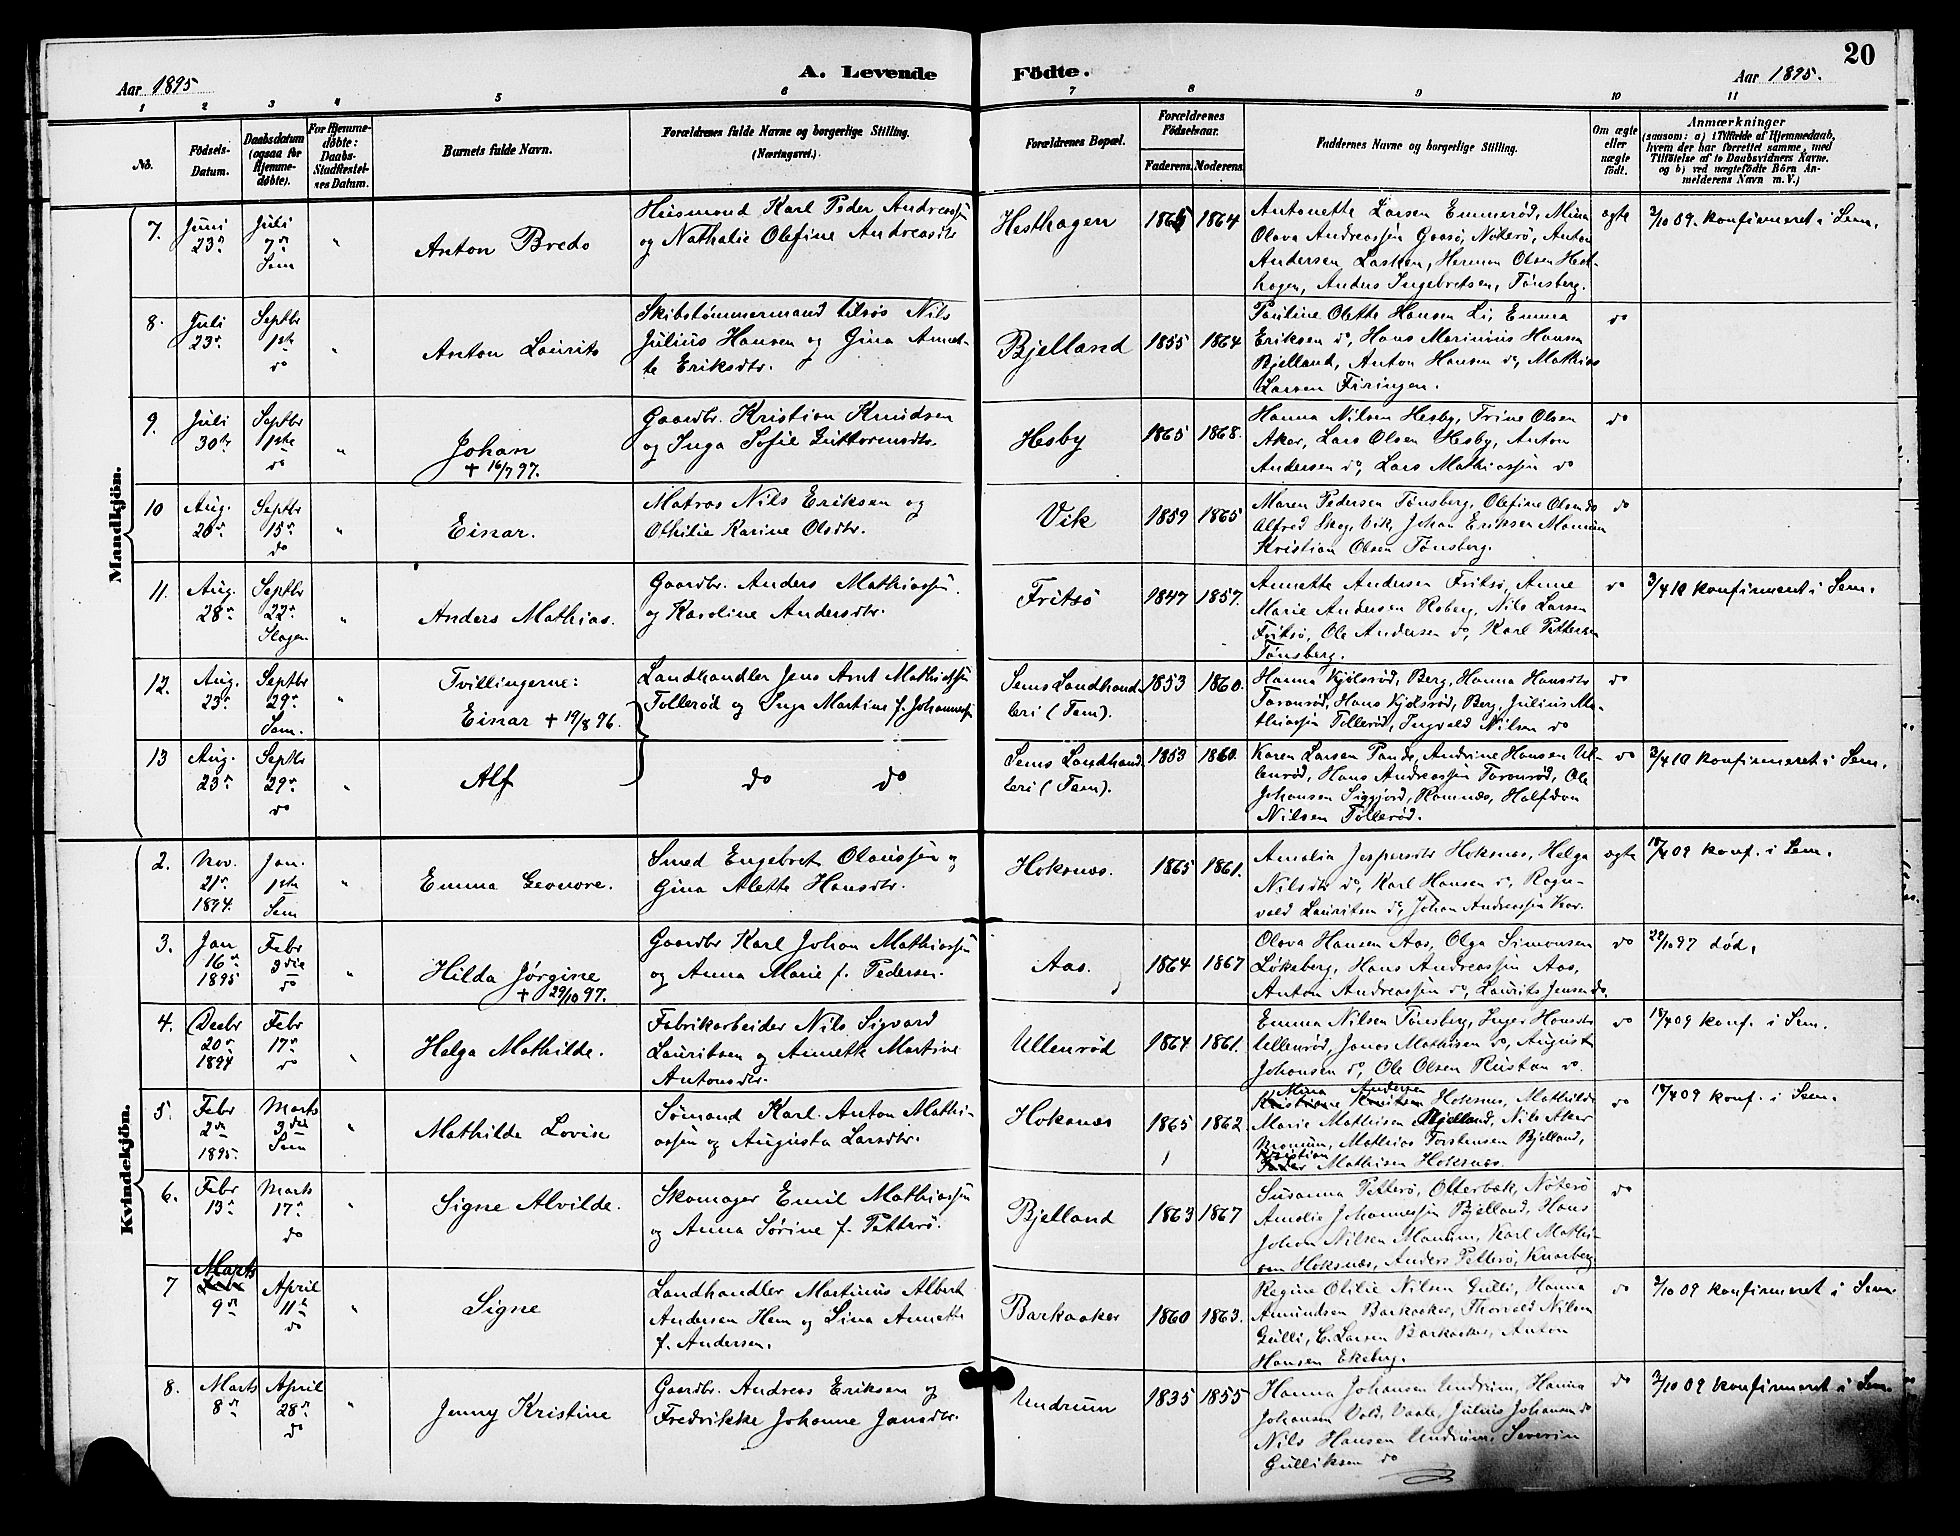 20
Aar 1895
A. Levende
Födte.
Aar 1895.
1 2 3 4 5 6 7 8 9 10 11
No.
Födsels-
Datum.
Daabsdatum
(ogsaa for
Hjemme-
døbte).
For Hjemme-
døbte:
Daabs-
Stadfæstel-
ses Datum.
Barnets fulde Navn.
Forældrenes fulde Navne og borgerlige Stilling.
(Næringsvei.)
Forældrenes Bopæl.
Forældrenes
Födselsaar.
Faderens.
Moderens.
Faddernes Navne og borgerlige Stilling.
Om ægte
eller
uægte
født.
Anmærkninger
(saasom: a) i Tilfælde af Hjemmedaab,
hvem der har forrettet samme, med
Tilføielse af to Daabsvidners Navne.
og b) ved uægtefødte Börn An-
melderens Navn m. V.)
Mandkjön.
7.
Juni
23de
Juli
7de
Sem
"
Anton Bredo
Husmand Karl Peder Andreassen
og Nathalie Olefine Andreasdtr
Hesthagen
1865
1864
Antonette Larsen Emmerød, Mina
Olava Andreassen Gaasø, Nøterø, Anton
Andersen Lasken, Herman Olsen Hest-
hagen, Anders Ingebretsen, Tønsberg.
ægte
2/10 09. konfirmeret i Sem.
8.
Juli
23de
Septbr
1ste
do
"
Anton Laurits
Skibstømmermand tilsøs Nils
Julius Hansen og Gina Anet-
te Eriksdtr.
Bjelland
1855
1864
Pauline Olette Hansen Li, Emma
Eriksen do, Hans Marinius Hansen
Bjelland, Anton Hansen do, Mathias
Larsen Firingen.
do
9.
Juli
30te
Septbr
1ste
do
"
Johan
+ 16/7 97.
Gaardbr. Kristian Knudsen
og Inga Sofie Guttormsdtr.
Hesby
1865
1868.
Hanna Nilsen Hesby, Trine Olsen
Aker, Lars Olsen Hesby, Anton
Andersen do, Lars Mathiassen do
do
10
Aug.
Septbr
15de
do
"
Einar.
Matros Nils Eriksen og
Othilie Karine Olsdtr.
Vik
1859
1865
Maren Pedersen Tønsberg, Olefine Olsen do
Alfred Skog, Vik, Johan Eriksen Manum
Kristian Olsen Tønsberg.
do
11.
Aug.
28de
Septbr
22de
Slagen
"
Anders Mathias.
Gaardbr. Anders Mathiassen.
og Karoline Andersdtr.
Fritsø
1847
1857.
Annette Andersen Fritsø, Anne
Marie Andersen Roberg, Nils Larsen
Fritsø, Ole Andersen do, Karl Pettersen
Tønsberg.
do
3/4 10 konfirmeret i Sem.
12.
Aug.
23de
Septbr
29de
Sem.
"
Tvillingerne:
Einar + 19/8 96.
Landhandler Jens Arnt Mathiassen
Tollerød og Inga Martine f. Johannesen
Sems Landhand-
leri (Fam).
1853
1860.
Hanna Kjølsrød, Berg, Hanna Hansdtr
Taranrød, Hans Kjølsrød, Berg, Julius Ma-
thiassen Tollerød, Ingvald Nilsen do
do
13
Aug.
23de
Septbr
29de
do
"
Alf
do do
Sems Landhand-
leri (Fam).
1853
1860.
Karen Larsen Tande, Andrine Hansen Ul-
lenrød, Hans Andreassen Taranrød, Ole
Johansen Siggjord, Ramnæs, Halfdan
Nilsen Tollerød.
do
3/4 10 konfirmeret i Sem.
Kvindekjön.
2.
Nov.
21de
1894.
Jan.
1ste
Sem
"
Emma Leonore.
Smed Engebret Olaussen og
Gina Alette Hansdtr.
Hoksnæs.
1865
1861.
Amalia Jespersdtr Hoksnæs, Helga
Nilsdtr do, Karl Hansen do, Ragn-
vald Lauritsen do, Johan Andreassen
ægte
18/4 09 konf. i Sem.
3.
Jan
16de
1895
Febr
3die
do
"
Hilda Jørgine
+ 29/10 97.
Gaardbr Karl Johan Mathiassen
og Anna Marie f. Pedersen.
Aas.
1864
1867
Olava Hansen Aas, Olga Simonsen
Løkeberg, Hans Andreassen Aas,
Anton Andreassen do, Laurits Jensen do.
do
29/10 97 død.
4.
Decbr
20de
1894
Febr
17de
do
"
Helga Mathilde.
Fabrikarbeider Nils Sigvard
Lauritsen og Annette Martine
Antonsdtr.
Ullenrød
1864
1861.
Emma Nilsen Tønsberg, Inger Hansdtr
Ullenrød, Jonas Mathisen do, August
Johansen do, Ole Olsen Rustan do.
do
18/4 09 konf. i Sem.
5.
Febr
2den
1895.
Marts
3die
Sem
"
Mathilde Lovise
Sømand Karl Anton Mathi-
assen og Augusta Larsdtr.
Hoksnæs
1865
1862.
Mina Andersen
Kristiane Knutsen Hoksnæs, Mathilde
Marie Mathisen Bjelland, Nils Aker
Manum, Mathias Torstensen Bjelland,
Kristian
Mathisen Hoksnæs.
do
18/4 09 konf. i Sem.
6.
Febr
13de
Marts
17de
do
"
Signe Alvilde.
Skomager Emil Mathiassen
og Anna Sørine f. Petterø.
Bjelland
1863
1867
Susanna Petterø, Otterbæk, Nøterø
Amalie Johannessen Bjelland, Hans
Johan Nilsen Manum, Karl Mathi-
sen Hoksnæs, Anders Petterø, Knarberg
do
7
Marts
9de
April
11te
do
"
Signe
Landhandler Martinius Albert
Andersen Hem og Lina Annette
f. Andersen.
Barkaaker
1860
1863.
Regine Otilie Nilsen Gulli, Hanna
Amundsen Barkaaker, Thorvald Nilsen
Gulli, C. Larsen Barkaaker, Anton
Hansen Ekeberg.
do
2/10 09 konfirmeret i Sem
8.
Marts
8de
April
28de
do
"
Jenny Kristine
Gaardbr. Andreas Eriksen og
Fredrikke Johanne Jansdtr.
Undrum
1835
1855
Hanna Johansen Undrum, Hanna
Johansen Vold, Vaale, Julius Johansen do
Nils Hansen Undrum, Severin
Gulliksen do
do
2/10 09 konfirmeret i Sem.